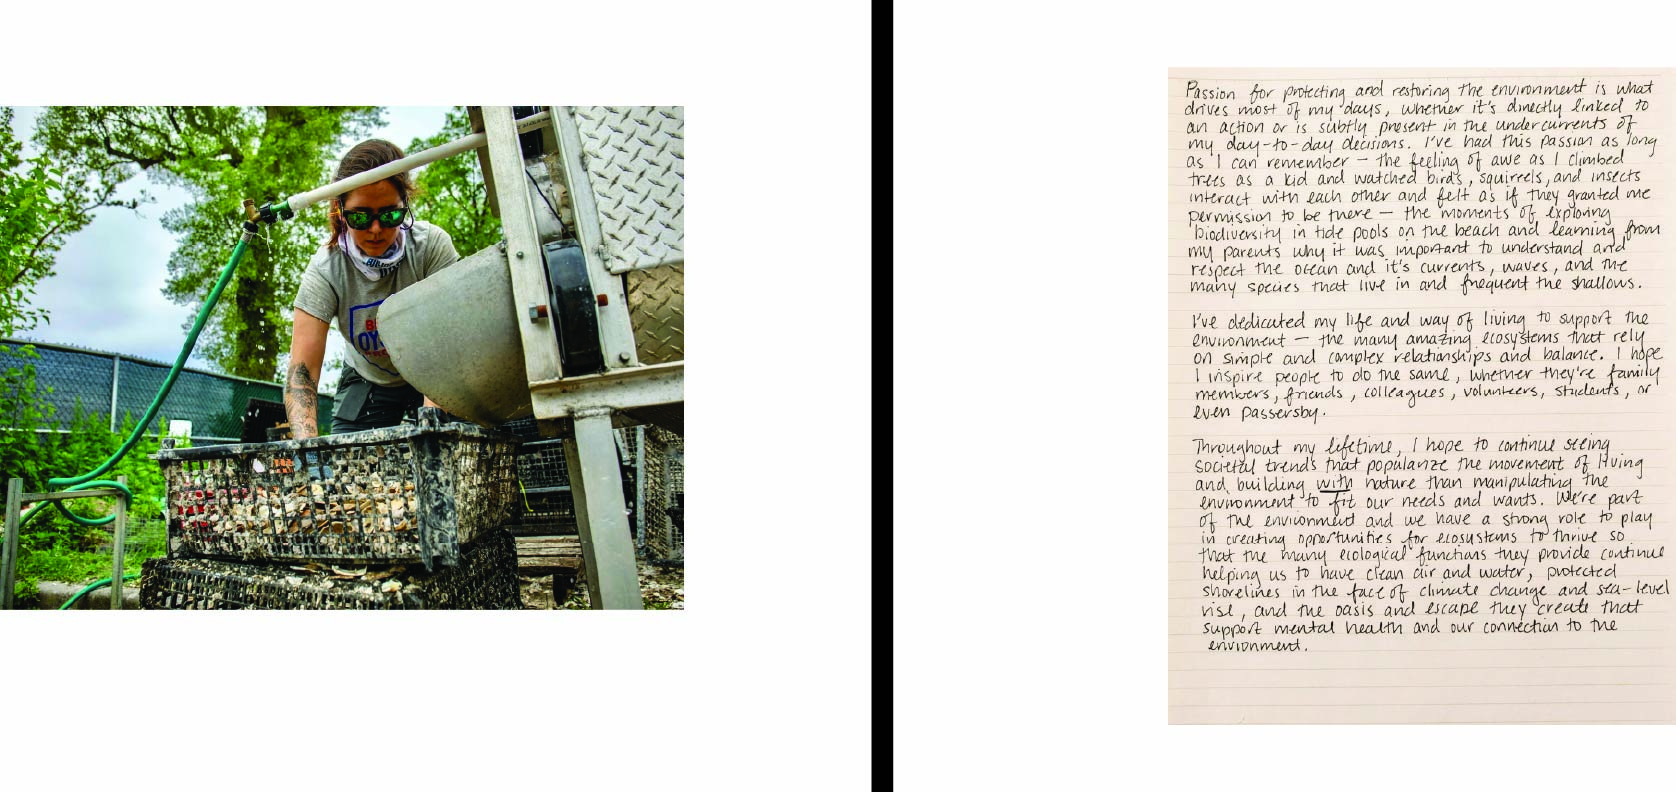 BI
OY
Passion for protecting and restoring the environment is what
drives most of my days, whether it's directly linked to
an action or is subtly present in the undercurrents of
my day-to-day decisions. I've had this passion as long
as I can remember — the feeling of awe as I climbed
trees as a kid and watched birds, squirrels, and insects
interact with each other and felt as if they granted me
permission to be there — the moments of exploring
biodiversity in tide pools on the beach and learning from
my parents why it was important to understand and
respect the ocean and it's currents, waves, and the
many species that live in and frequent the shallows.
I've dedicated my life and way of living to support the
environment — the many amazing ecosystems that rely
on simple and complex relationships and balance. I hope
I inspire people to do the same, whether they're family
members, friends, colleagues, volunteers, students, or
even passersby.
Throughout my lifetime, I hope to continue seeing
societal trends that popularize the movement of living
and building with nature than manipulating the
environment to fit our needs and wants. We're part
of the environment and we have a strong role to play
in creating opportunities for ecosystems to thrive so
that the many ecological functions they provide continue
helping us to have clean air and water, protected
shorelines in the face of climate change and sea-level
rise, and the oasis and escape they create that
support mental health and our connection to the
environment.